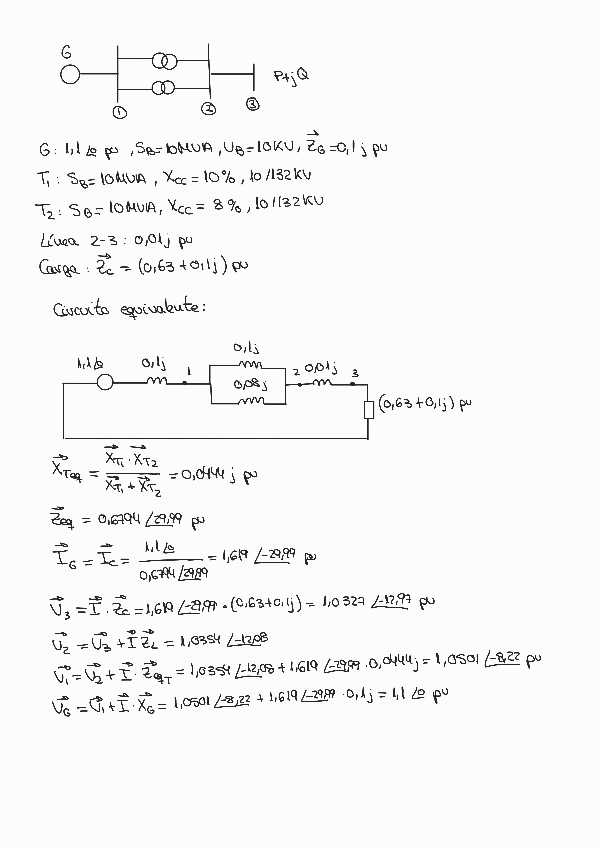 G
P+jQ
① ② ③
G: 1,1∠0 pu, S_B=10MVA, U_B=10KV, Z⃗_G=0,1j pu
T₁: S_B=10MVA, X_CC=10%, 10/132KV
T₂: S_B=10MVA, X_CC=8%, 10/132KV
Línea 2-3: 0,01j pu
Carga: Z⃗_C=(0,63+0,1j) pu
Circuito equivalente:
0,1j
1,1∠0 0,1j 1 0,08j 2 0,01j 3
(0,63+0,1j) pu
X⃗_Teq = (X⃗_T1·X⃗_T2)/(X⃗_T1+X⃗_T2) = 0,0444j pu
Z⃗eq = 0,6794∠29,99 pu
I⃗_G = I⃗_C = 1,1∠0/0,6794∠29,99 = 1,619∠-29,99 pu
U⃗₃ = I⃗·Z⃗_C = 1,619∠-29,99·(0,63+0,1j) = 1,0327∠-12,97 pu
U⃗₂ = U⃗₃+I⃗Z⃗_L = 1,0354∠-12,08
U⃗₁ = U⃗₂+I⃗·Z⃗_eqT = 1,0354∠-12,08+1,619∠-29,99·0,0444j = 1,0501∠-8,22 pu
U⃗_G = U⃗₁+I⃗·X_G = 1,0501∠-8,22+1,619∠-29,99·0,1j = 1,1∠0 pu